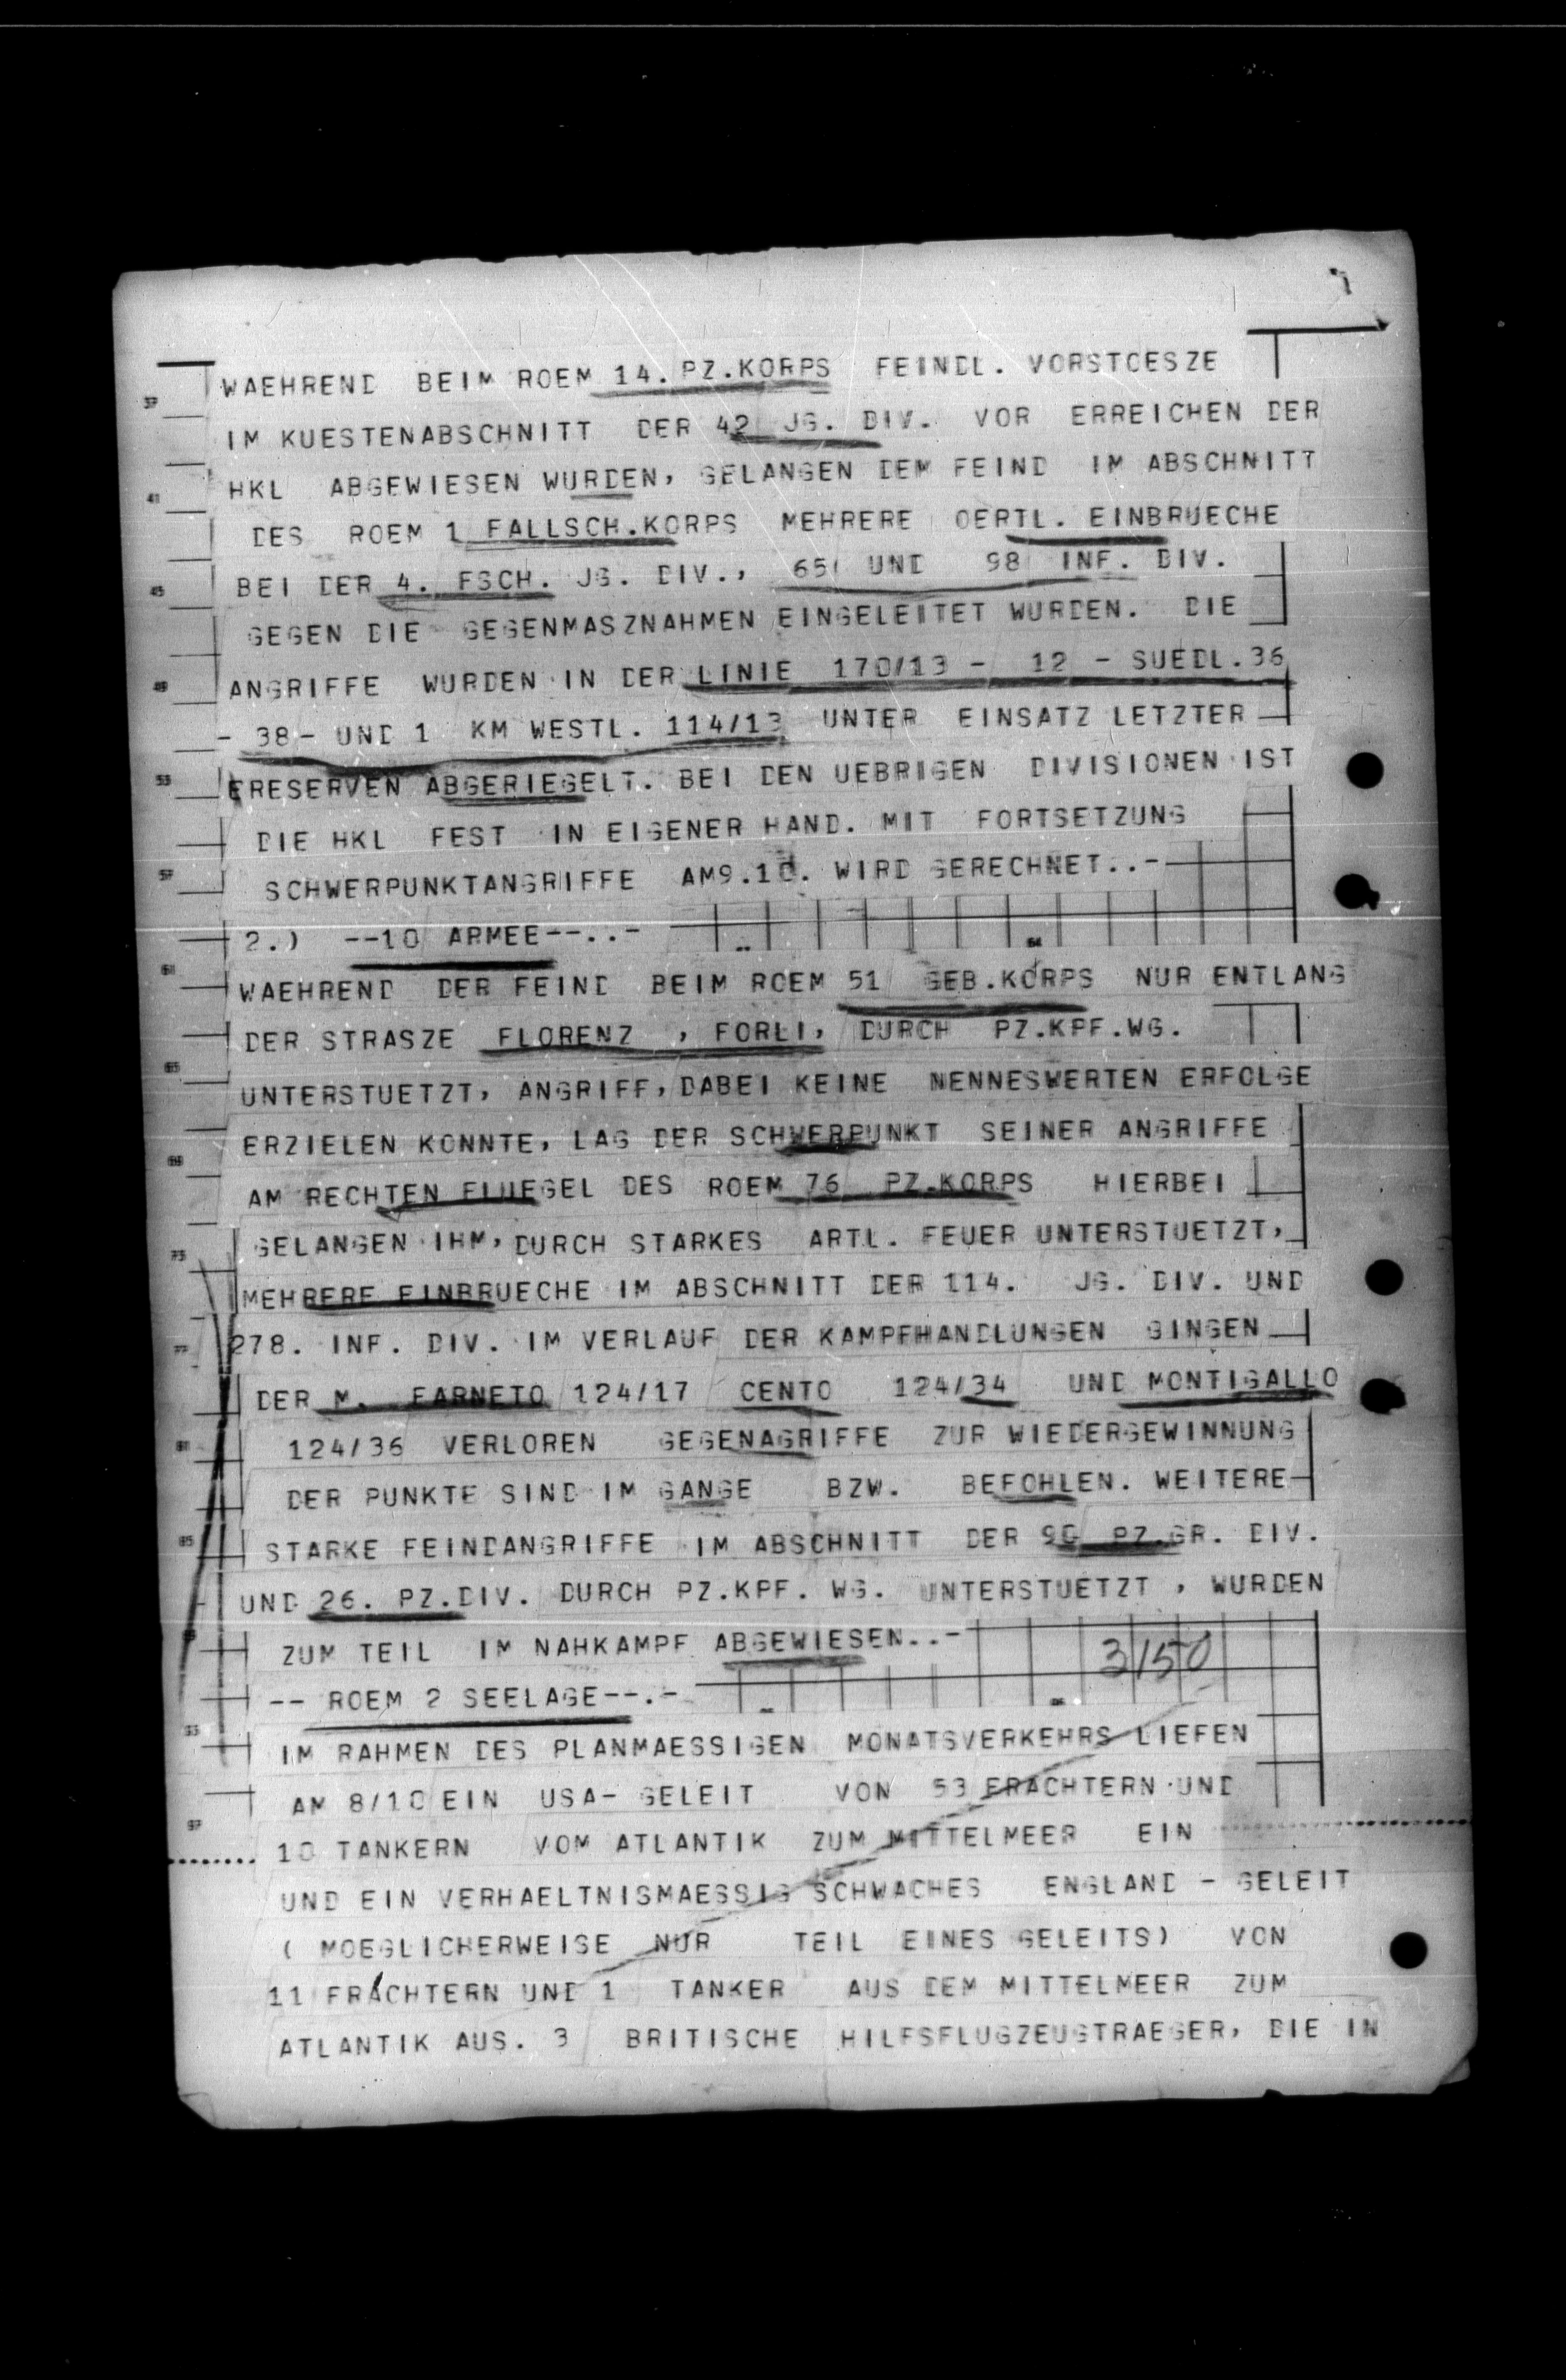 WAEHREND BEIM ROEM 14. PZ.KORPS FEINDL. VORSTOESZE
IM KUESTENABSCHNITT DER 42 JG. DIV. VOR ERREICHEN DER
HKL ABGEWIESEN WURDEN, GELANGEN DEM FEIND IM ABSCHNITT
DES ROEM 1 FALLSCH.KORPS MEHRERE OERTL. EINBRUECHE
BEI DER 4. FSCH. JG. DIV., 65 UND 98 INF. DIV.
GEGEN DIE GEGENMASZNAHMEN EINGELEITET WURDEN. DIE
ANGRIFFE WURDEN IN DER LINIE 170/13 - 12 - SUEDL.36
- 38 - UND 1 KM WESTL. 114/13 UNTER EINSATZ LETZTER
ERESERVEN ABGERIEGELT. BEI DEN UEBRIGEN DIVISIONEN IST
DIE HKL FEST IN EIGENER HAND. MIT FORTSETZUNG
SCHWERPUNKTANGRIFFE AM9.10. WIRD GERECHNET..-
2.) --10 ARMEE--..-
WAEHREND DER FEIND BEIM ROEM 51 GEB.KORPS NUR ENTLANG
DER STRASZE FLORENZ , FORLI, DURCH PZ.KPF.WG.
UNTERSTUETZT, ANGRIFF, DABEI KEINE NENNESWERTEN ERFOLGE
ERZIELEN KONNTE, LAG DER SCHWERPUNKT SEINER ANGRIFFE
AM RECHTEN FLUEGEL DES ROEM 76 PZ.KORPS HIERBEI
GELANGEN IHM, DURCH STARKES ARTL. FEUER UNTERSTUETZT,
MEHRERE EINBRUECHE IM ABSCHNITT DER 114. JG. DIV. UND
278. INF. DIV. IM VERLAUF DER KAMPFHANDLUNGEN GINGEN
DER M. FARNETO 124/17 CENTO 124/34 UND MONTIGALLO
124/36 VERLOREN GEGENAGRIFFE ZUR WIEDERGEWINNUNG
DER PUNKTE SIND IM GANGE BZW. BEFOHLEN. WEITERE
STARKE FEINDANGRIFFE IM ABSCHNITT DER 90 PZ.GR. DIV.
UND 26. PZ.DIV. DURCH PZ.KPF. WG. UNTERSTUETZT , WURDEN
ZUM TEIL IM NAHKAMPF ABGEWIESEN..-
3150
-- ROEM 2 SEELAGE--.-
IM RAHMEN DES PLANMAESSIGEN MONATSVERKEHRS LIEFEN
AM 8/10 EIN USA- GELEIT VON 53 FRACHTERN UND
10 TANKERN VOM ATLANTIK ZUM MITTELMEER EIN
UND EIN VERHAELTNISMAESSIG SCHWACHES ENGLAND - GELEIT
( MOEGLICHERWEISE NUR TEIL EINES GELEITS) VON
11 FRACHTERN UND 1 TANKER AUS DEM MITTELMEER ZUM
ATLANTIK AUS. 3 BRITISCHE HILFSFLUGZEUGTRAEGER, DIE IN